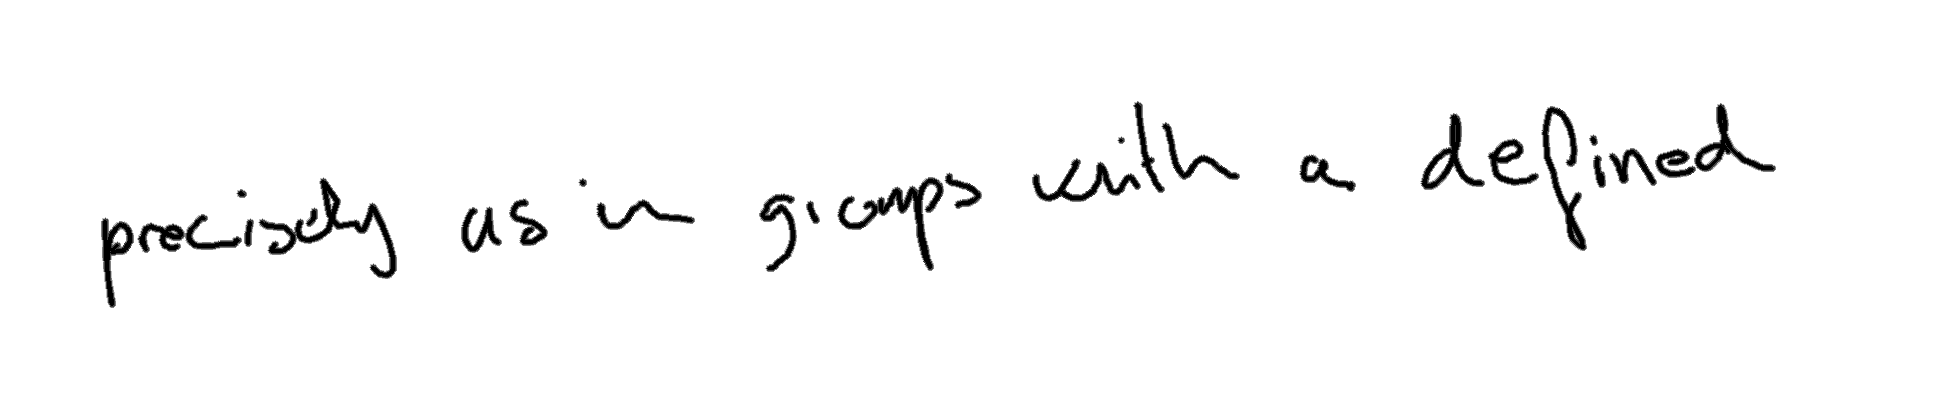 precisely as in groups with a defined